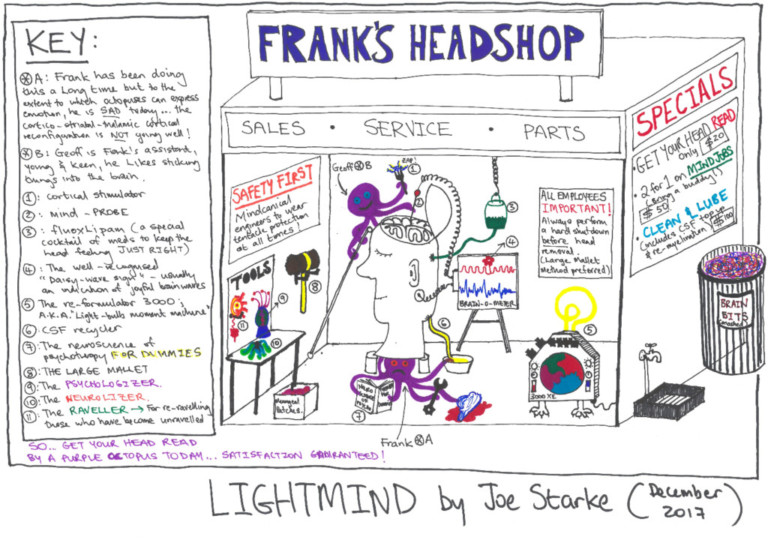 KEY:
Ⓧ A: Frank has been doing
this a long time but to the
extent to which octopuses can express
emotion, he is SAD today... the
cortico-striatal-thalamic cortical
reconfiguration is NOT going well!
Ⓧ B: Geoff is Frank's assistant,
young & keen, he likes sticking
things into the brain.
①: cortical stimulator
②: mind-PROBE
③: fluoxLipam (a special
cocktail of meds to keep the
head feeling JUST RIGHT)
④: The well-recognised
"Daisy-wave sign" - usually
an indication of joyful brainwaves
⑤ The re-formulator 3000;
A.K.A. 'Light-bulb moment machine'
⑥ CSF recycler
⑦: The neuroscience of
psychotherapy FOR DUMMIES
⑧: THE LARGE MALLET
⑨: The PSYCHOLOGIZER.
⑩: The NEUROLIZER.
⑪: The RAVELLER → For re-ravelling
those who have become unravelled
SO... GET YOUR HEAD READ
BY A PURPLE OCTOPUS TODAY... SATISFACTION GUARANTEED!
FRANK'S HEADSHOP
SALES • SERVICE • PARTS
SAFETY FIRST
Mindcanical
engineers to wear
tentacle protection
at all times!
Geoff Ⓧ B
ZAP
①
②
③
④
ALL EMPLOYEES
IMPORTANT!
Always perform
a hard shutdown
before head
removal.
(Large Mallet
Method preferred)
TOOLS
⑨
⑧
⑪
⑩
BRAIN-O-METER
⑥
⑤
3000 XL
⑦
Frank Ⓧ A
SPECIALS
• GET YOUR HEAD READ
only $20
• 2 for 1 on MINDJOBS
(Bring a buddy!)
$50
• CLEAN & LUBE
(includes CSF top up
& re-myelination) $100
BRAIN
BITS
LIGHTMIND by Joe Starke (December
2017)